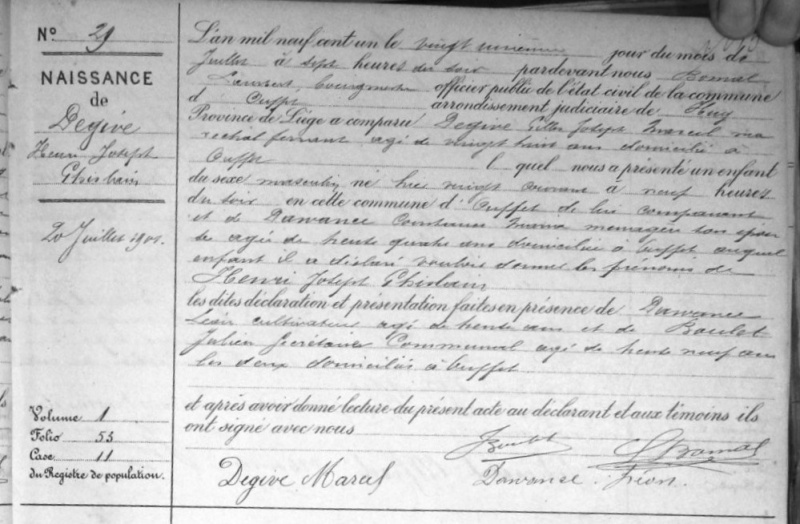 N° 29
NAISSANCE
de
Degive
Henri Joseph
Ghislain
20 Juillet 1901.
Volume 1
Folio 53
Case 11
du Registre de population.
L'an mil neuf cent un le vingt unième jour du mois de
Juillet à sept heures du soir pardevant nous Bomal
Lambert, bourgmestre officier public de l'état civil de la commune
d Ouffet arrondissement judiciaire de Huy
Province de Liége a comparu Degive Joseph Marcel ma
rechal ferrant agé de vingt huit ans domicilié à
Ouffet l quel nous a présenté un enfant
du sexe masculin né hier vingt courant à neuf heures
du soir en cette commune d'Ouffet de lui comparant
et de Dawance Maria menagère son epou
se agée de trente quatre ans domiciliée à Ouffet auquel
enfant il a déclaré vouloir donner les prénoms de
Henri Joseph Ghislain
les dites déclaration et présentation faites en présence de Dawance
Léon cultivateur agé de trente ans et de Boulet
Julien Secrétaire Communal agé de trente neuf ans
les deux domiciliés à Ouffet
et après avoir donné lecture du présent acte au déclarant et aux témoins ils
ont signé avec nous
JBoulet LBomal
Degive Marcel Dawance Léon.